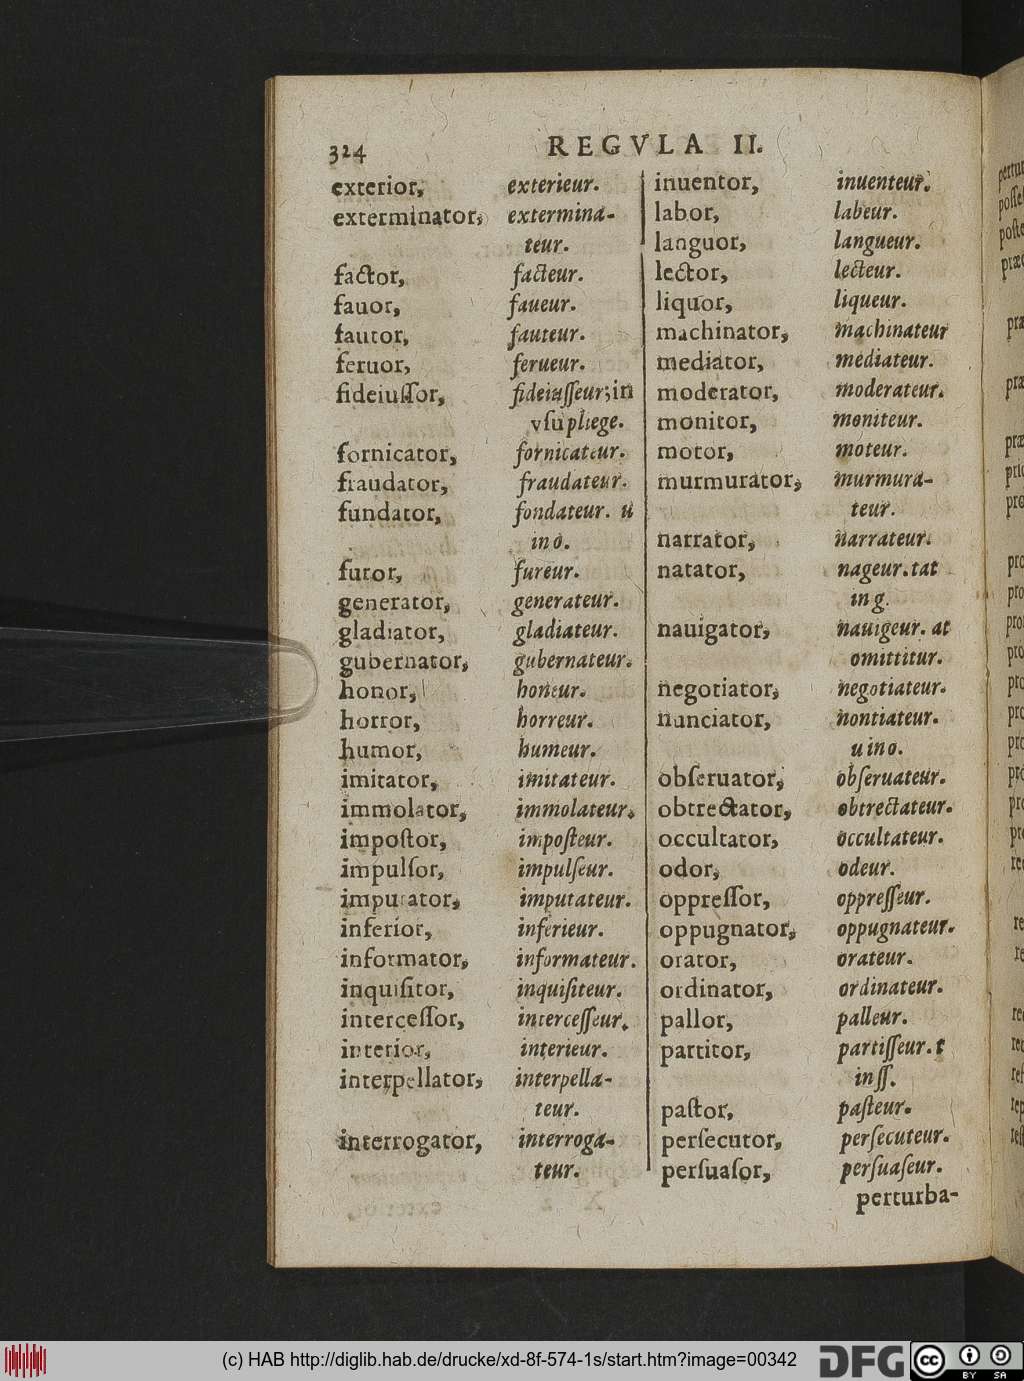 324 REGVLA II.
exterior, exterieur.
exterminator, extermina-
teur.
factor, facteur.
fauor, faueur.
fautor, fauteur.
feruor, ferueur.
fideiuſſor, fideiuſſeur; in
vſu plege.
fornicator, fornicateur.
fraudator, fraudateur.
fundator, fondateur. u
in o.
furor, fureur.
generator, generateur.
gladiator, gladiateur.
gubernator, gubernateur.
honor, honeur.
horror, horreur.
humor, humeur.
imitator, imitateur.
immolator, immolateur.
impoſtor, impoſteur.
impulſor, impulſeur.
imputator, imputateur.
inferior, inferieur.
informator, informateur.
inquiſitor, inquiſiteur.
interceſſor, interceſſeur.
interior, interieur.
interpellator, interpella-
teur.
interrogator, interroga-
teur.
inuentor, inuenteur.
labor, labeur.
languor, langueur.
lector, lecteur.
liquor, liqueur.
machinator, machinateur
mediator, mediateur.
moderator, moderateur.
monitor, moniteur.
motor, moteur.
murmurator, murmura-
teur.
narrator, narrateur.
natator, nageur. tat
in g.
nauigator, nauigeur. at
omittitur.
negotiator, negotiateur.
nunciator, nontiateur.
u in o.
obſeruator, obſeruateur.
obtrectator, obtrectateur.
occultator, occultateur.
odor, odeur.
oppreſſor, oppreſſeur.
oppugnator, oppugnateur.
orator, orateur.
ordinator, ordinateur.
pallor, palleur.
partitor, partiſſeur. t
in ſſ.
paſtor, paſteur.
perſecutor, perſecuteur.
perſuaſor, perſuaſeur.
perturba-
(c) HAB http://diglib.hab.de/drucke/xd-8f-574-1s/start.htm?image=00342
DFG
cc BY SA